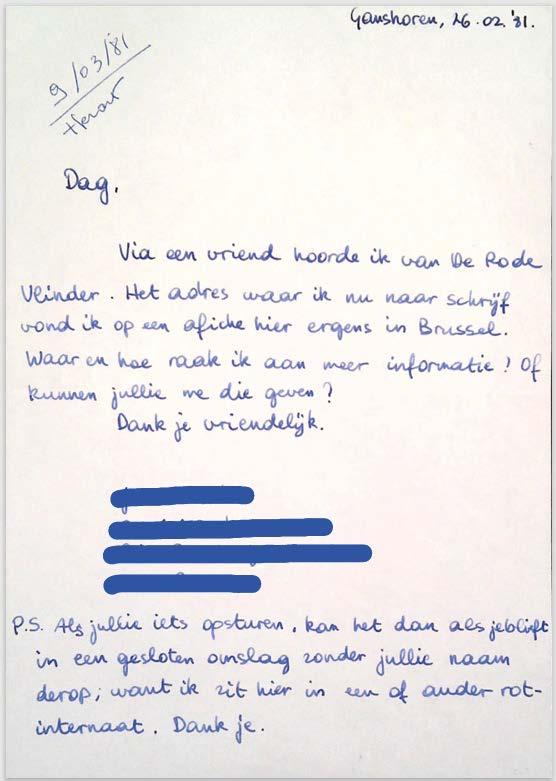 Ganshoren, 26.02.'81.
9/03/'81
Dag.
Via een vriend hoorde ik van De Rode
Vlinder. Het adres waar ik nu naar schrijf
vond ik op een afiche hier ergens in Brussel.
Waar en hoe raak ik aan meer informatie? Of
kunnen jullie me die geven?
Dank je vriendelijk.
P.S. Als jullie iets opsturen, kan het dan als jeblieft
in een gesloten omslag zonder jullie naam
derop; want ik zit hier in een of ander rot-
internaat. Dank je.